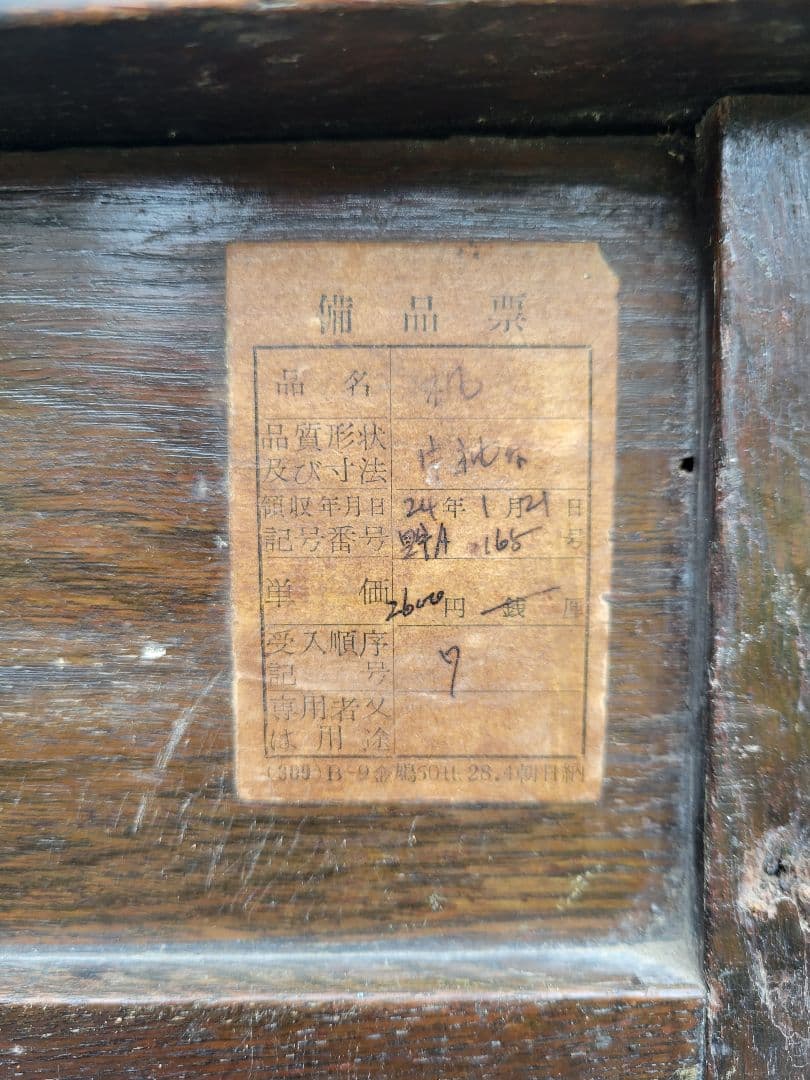 備品票
品名 机
品質形状
及び寸法 片袖
領収年月日 24年1月21日
記号番号 A 165号
単価 2600円 銭 厘
受入順序
記号 7
専用者又
は用途
(309) B-9 28.4 納